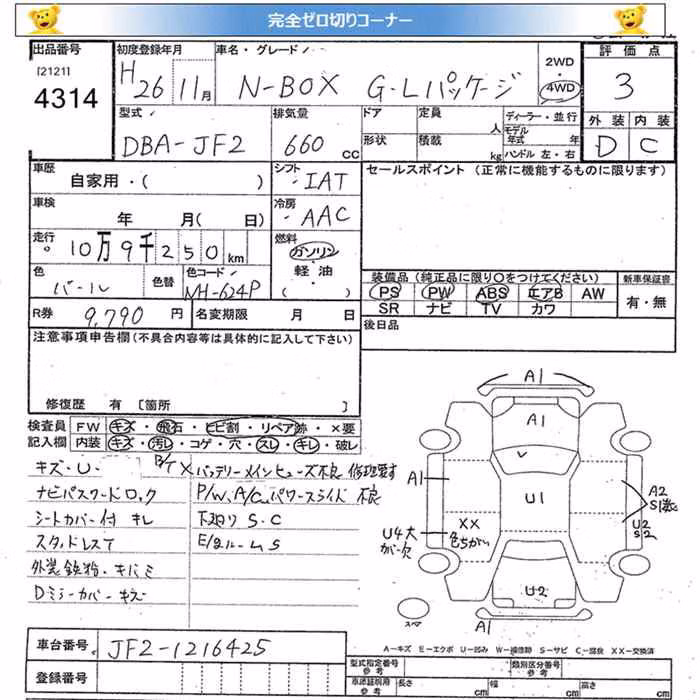 完全ゼロ切りコーナー
出品番号 初度登録年月 車名・グレード 評価点
[2121] 4314 H26 11月 N-BOX G・Lパッケージ 2WD 4WD 3
型式 排気量 ドア 定員 人 ディーラー・並行 外装 内装
DBA-JF2 660cc 形状 積載 kg モデル年式 年 D C
ハンドル 左・右
車歴 自家用・( ) シフト IAT セールスポイント (正常に機能するものに限ります)
車検 年 月( 日) 冷房 AAC
走行 10万9千250km 燃料 ガソリン
軽油
( )
色 パール 色替 色コード NH-624P 装備品 (純正品に限り○をつけてください) 新車保証書
PS PW ABS エアB AW 有・無
SR ナビ TV カワ
R券 9,790円 名変期限 月 日 後日品
注意事項申告欄(不具合内容等は具体的に記入して下さい)
修復歴 有 [箇所 ]
検査員 FW キズ・飛石・ヒビ割・リペア跡・×要
記入欄 内装 キズ・汚レ・コゲ・穴・スレ・キレ・破レ
キズ・U B/T× バッテリーメインヒューズ不良 修理要す
ナビパスワードロック P/W、A/C、パワースライド 不良
シートカバー付 キレ 下廻り S・C
スタッドレスT E/gルームS
外装鉄粉・キバミ
Dミラーカバーキズ
A1
A1
A1
U1
A2
S1
XX
色ちがい
U4大
ガバ欠
U2
S2
U2
A1
スペア
車台番号 JF2-1216425
A-キズ E-エクボ U-凹み W-補修跡 S-サビ C-腐食 XX-交換済
登録番号
型式指定番号 参考 類別区分番号 参考
車庫証明用 参考 長さ cm 幅 cm 高さ cm